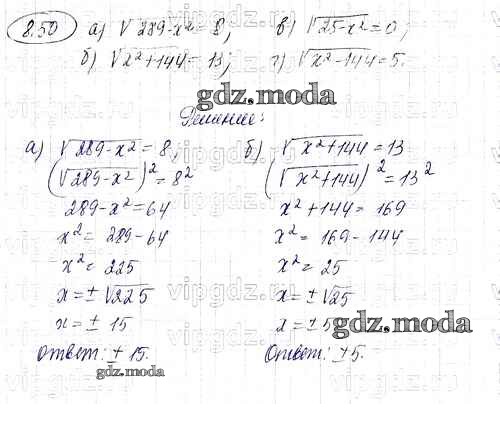 8.50 а) √289-x² = 8; в) √25-x² = 0;
б) √x²+144 = 13; г) √x²-144 = 5.
gdz.moda
Решение:
а) √289-x² = 8,
(√289-x²)² = 8²
289-x² = 64
x² = 289-64
x² = 225
x = ± √225
x = ± 15
Ответ: ± 15.
gdz.moda
б) √x²+144 = 13
(√x²+144)² = 13²
x²+144 = 169
x² = 169-144
x² = 25
x = ± √25
x = ± 5
gdz.moda
Ответ: ± 5.